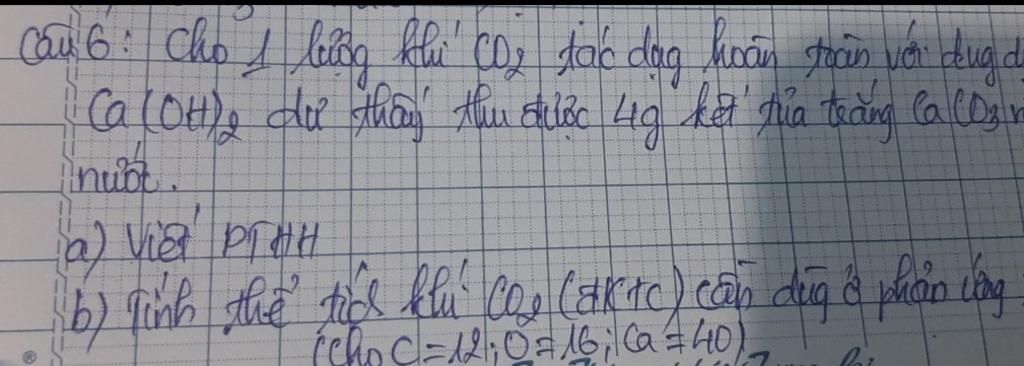 Câu 6: Cho 1 lượng khí CO2 tác dụg hoàn toàn với dug d
Ca(OH)2 dư thấy thu được 4g kết tủa trắng CaCO3 v
nước.
a) Viết PTHH
b) Tính thể tích khí CO2 (đktc) cần dùg ở phản ứng
(cho C=12; O=16; Ca=40)